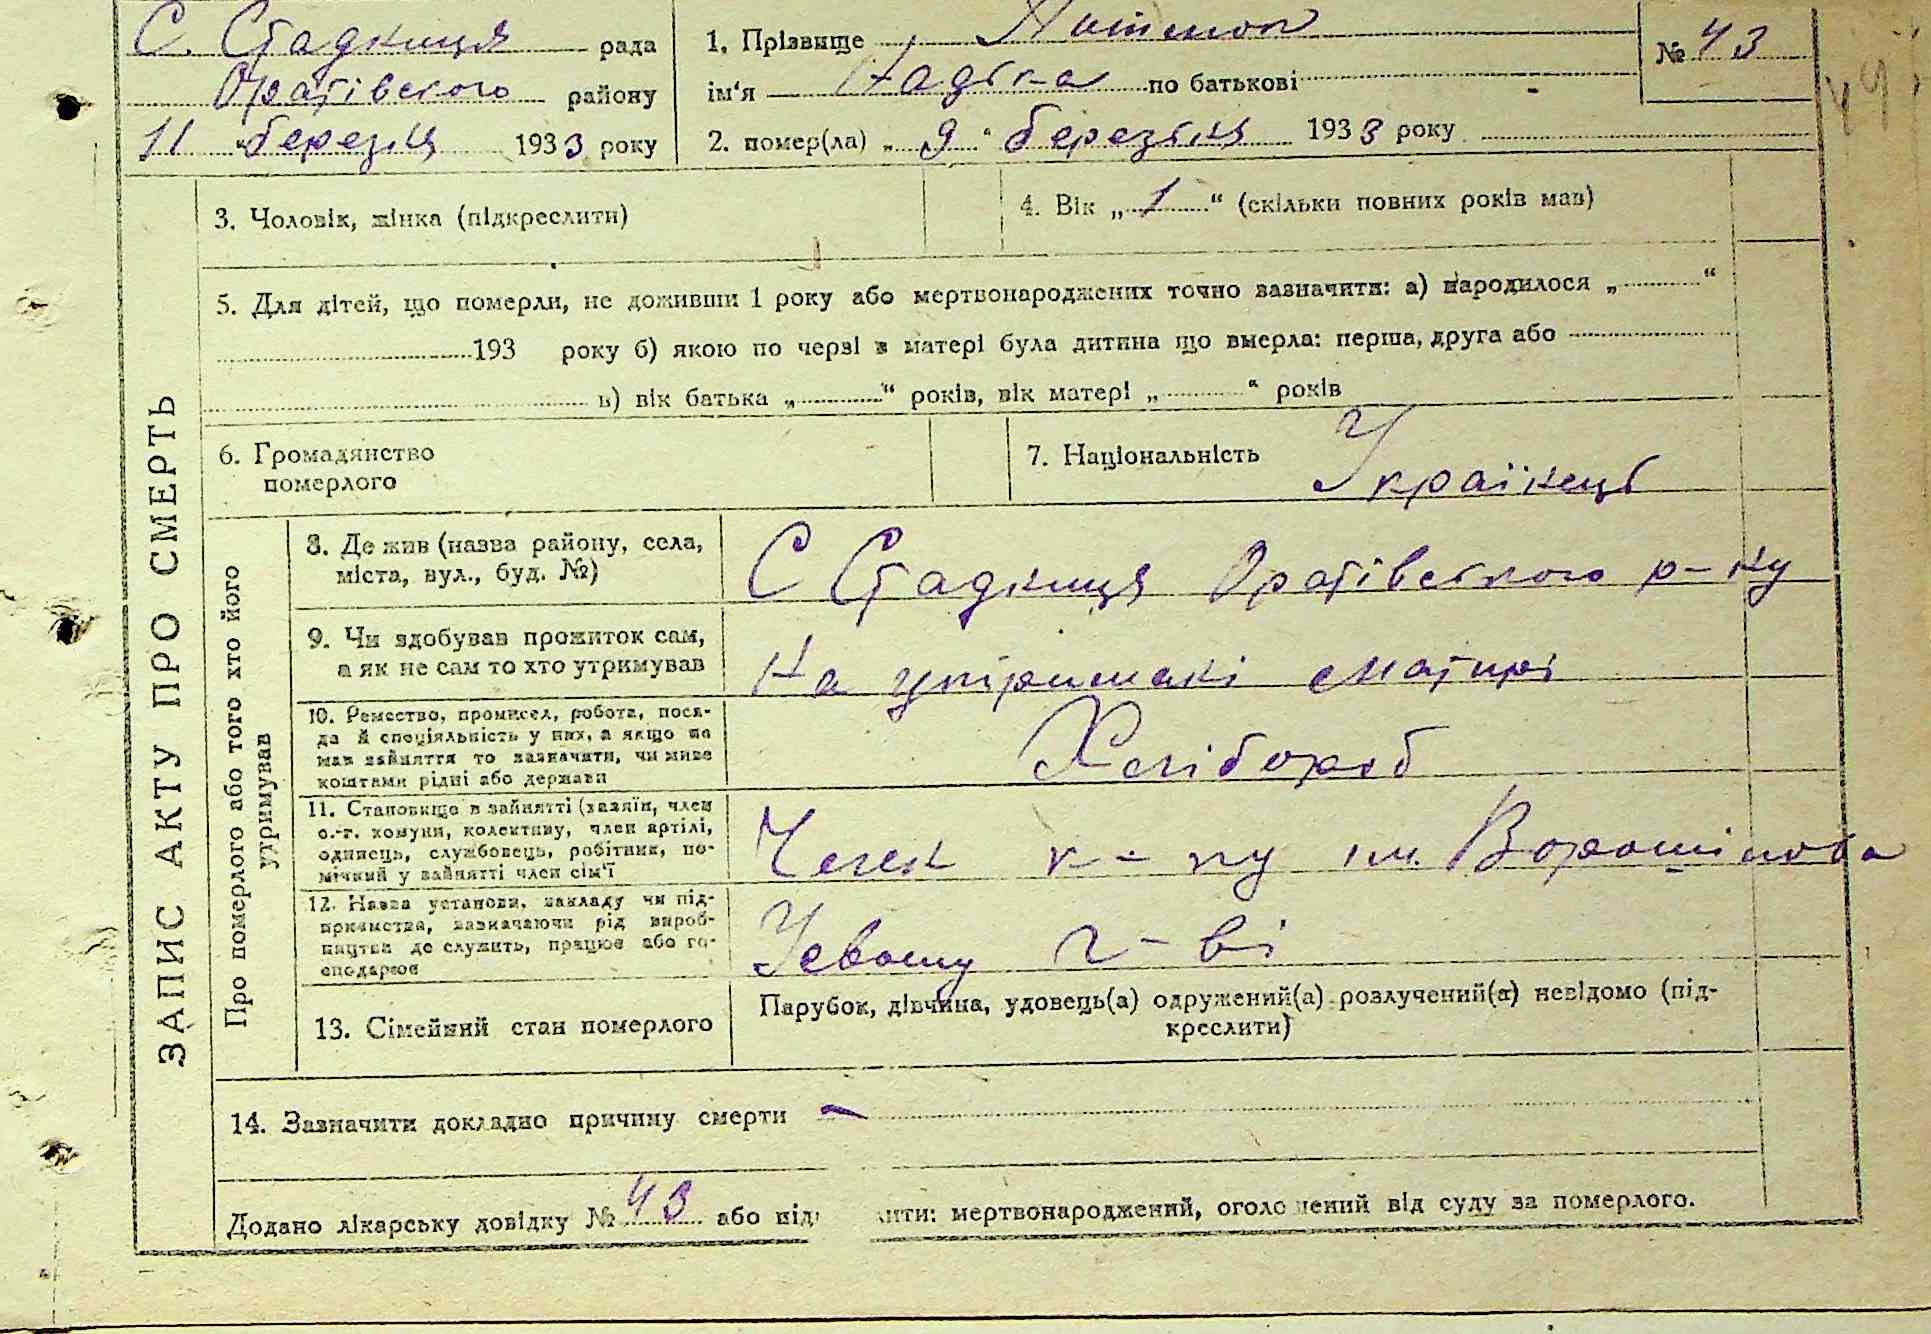 С. Стадниця рада
Оратівського району
11 "березня 1933 року
1. Прізвище
№ 43
ім'я Надька по батькові
2. помер(ла) „ 9 “ березня 1933 року
ЗАПИС АКТУ ПРО СМЕРТЬ
3. Чоловік, жінка (підкреслити)
4. Вік „ 1 “ (скільки повних років мав)
5. Для дітей, що померли, не доживши 1 року або мертвонароджених точно зазначити: а) народилося „ “
193 року б) якою по черзі в матері була дитина що вмерла: перша, друга або
в) вік батька „ “ років, вік матері „ “ років
6. Громадянство
померлого
7. Національність Українець
Про померлого або того хто його
утримував
8. Де жив (назва району, села,
міста, вул., буд. №)
С Стадниця Оратівського р-ну
9. Чи здобував прожиток сам,
а як не сам то хто утримував
На утриманні матирі
10. Ремество, промисел, робота, поса-
да й спеціяльність у них, а якщо не
мав зайняття то зазначити, чи живе
коштами рідні або держави
Хлібороб
11. Становище в зайнятті (хазяїн, член
с.-г. комуни, колективу, член артілі,
одинець, службовець, робітник, по-
мічний у зайнятті член сім'ї
Член к-пу ім. Ворошілова
12. Назва установи, закладу чи під-
приємства, зазначаючи рід вироб-
ництва де служить, працює або го-
сподарює
У свошу г-ві
13. Сімейний стан померлого
Парубок, дівчина, удовець(а) одружений(а) розлучений(а) невідомо (під-
креслити)
14. Зазначити докладно причину смерти —
Додано лікарську довідку № 43 або під ити: мертвонароджений, оголо ений від суду за померлого.